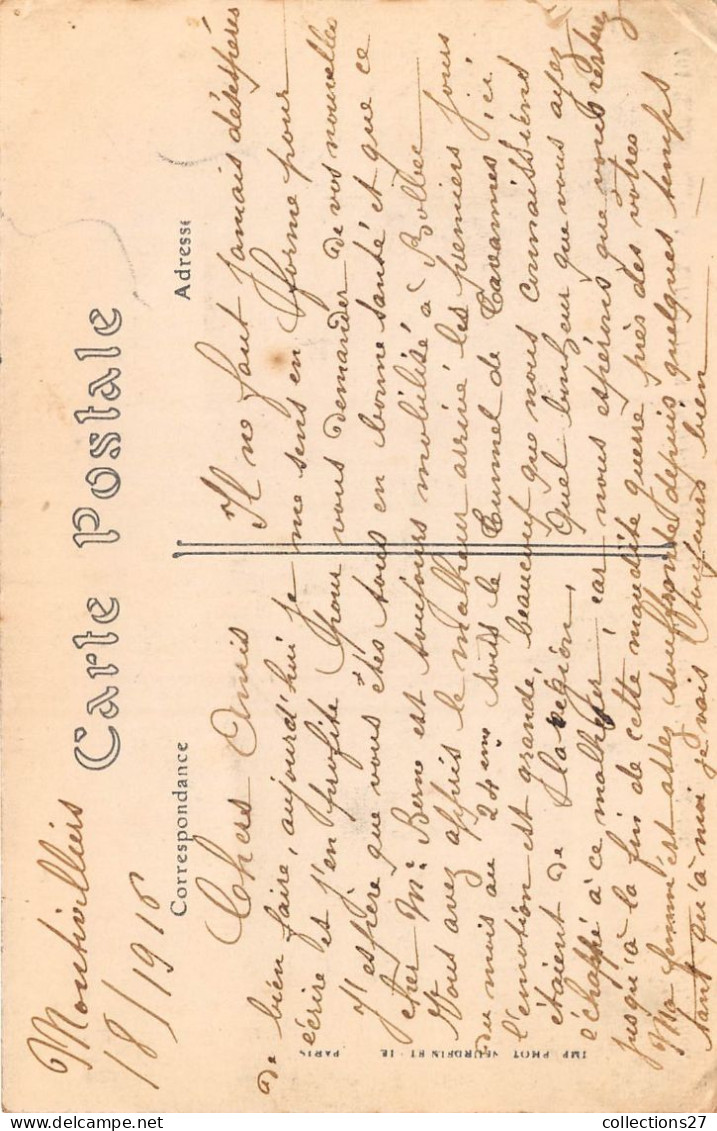 Montivilliers
18/1916
Carte Postale
Correspondance
Adresse
Chers Amis
Il ne faut jamais désespérés
de bien faire, aujourd'hui je me sens en forme pour
écrire et j'en profite pour vous demander de vos nouvelles
J'espère que vous êtes tous en bonne santé et que ce
cher Mr. Berne est toujours mobilisé à Bolbec
Vous avez appris le malheur arrivé les premiers jours
du mois au 24em sous le Tunnel de Tavannes, ici
l'émotion est grande, beaucoup que nous connaissiens
étaient de la région, Quel bonheur que vous ayez
échappé à ce malheur, car nous espérons que vous resterez
jusqu'à la fin de cette maudite guerre près des votres
Ma femme est assez souffrante depuis quelques temps
tant qu'à moi je vais toujours bien
IMP. PHOT. NEURDEIN ET CIE PARIS
collections27